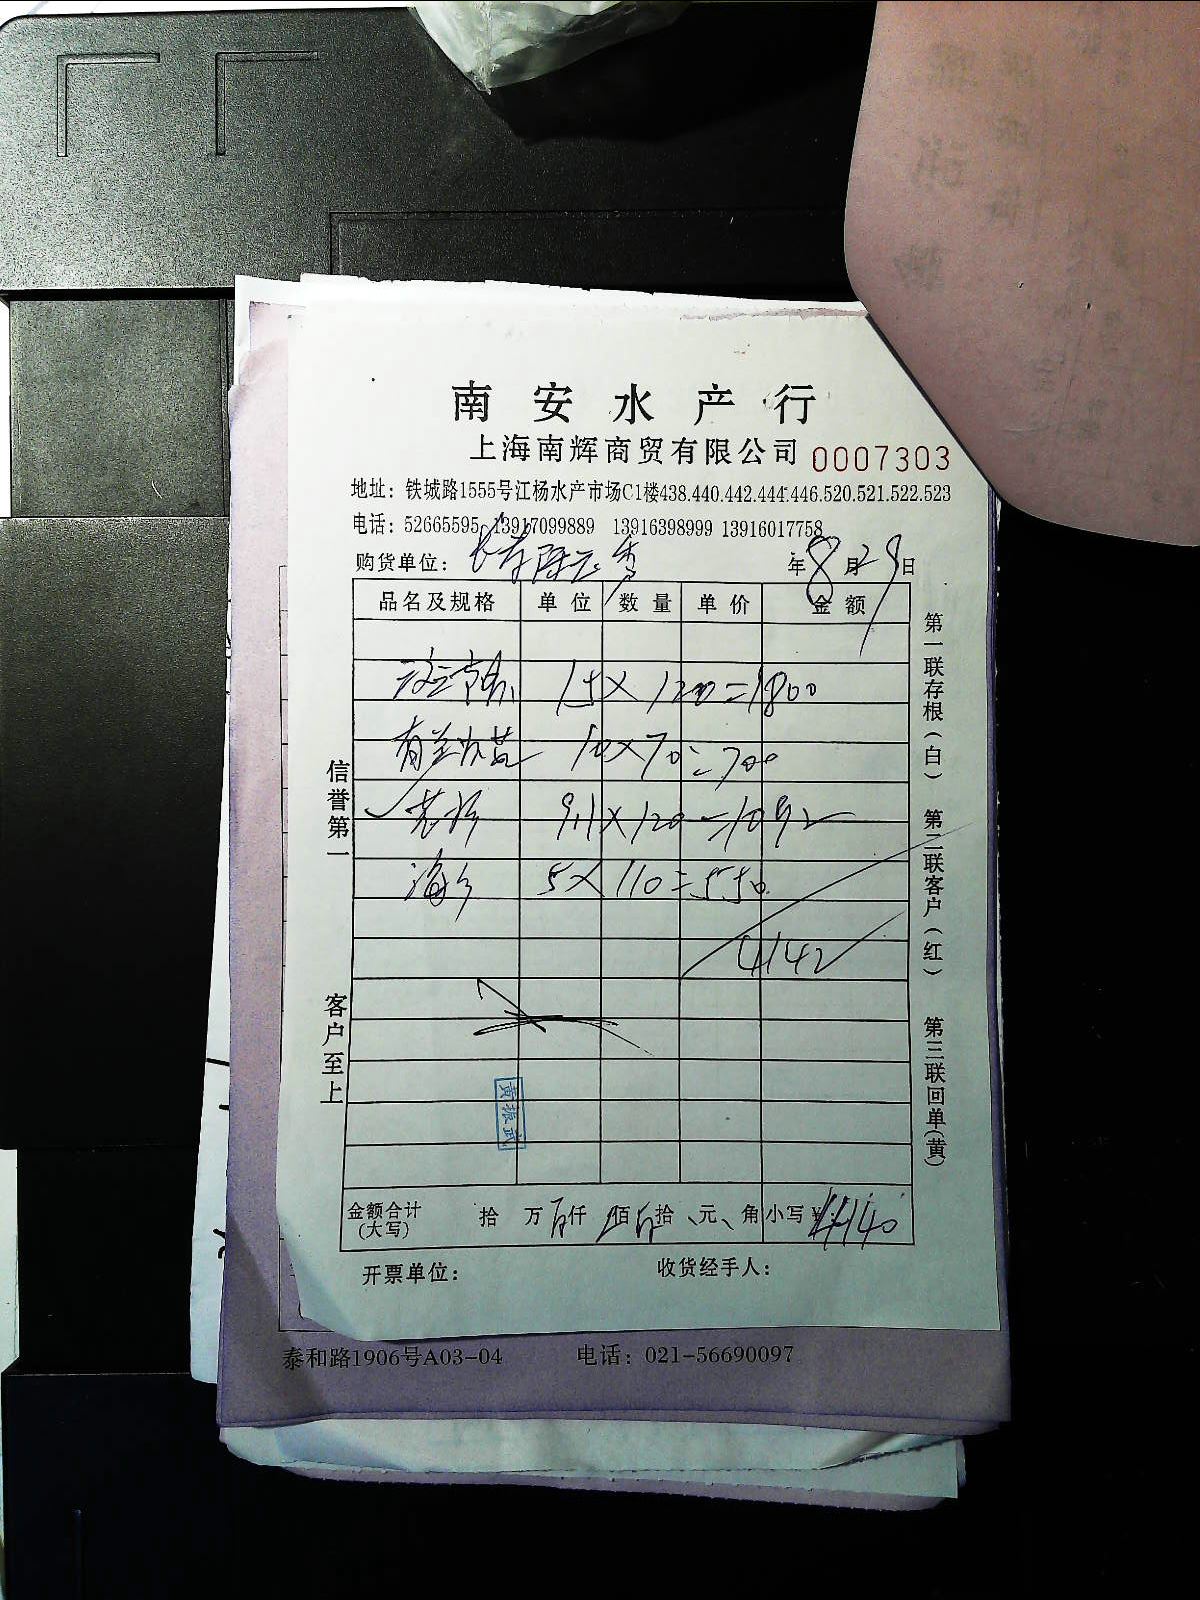 南安水产行
上海南辉商贸有限公司 0007303
地址：铁城路1555号江杨水产市场C1楼438.440.442.444.446.520.521.522.523
电话：52665595 13917099889 13916398999 13916017758
购货单位： 年8月29日
品名及规格 单位 数量 单价 金额
15×120=1800
10×70=700
9.1×120=1092
海 5×110=550
4142
信誉第一
客户至上
第一联存根（白） 第二联客户（红） 第三联回单（黄）
黄振武
金额合计（大写） 拾 万 仟 佰 拾 元 角 小写￥4140
开票单位： 收货经手人：
泰和路1906号A03-04 电话：021-56690097